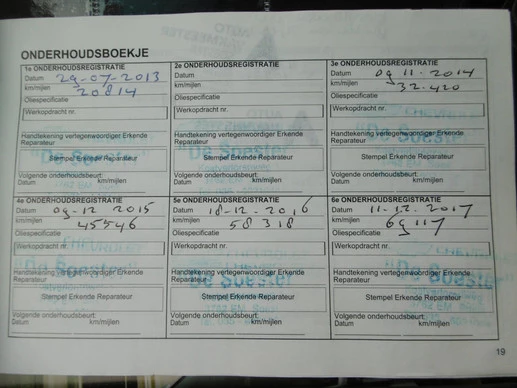 ONDERHOUDSBOEKJE
1e ONDERHOUDSREGISTRATIE
Datum 29-07-2013
km/mijlen 20814
Oliespecificatie
Werkopdracht nr.
Handtekening vertegenwoordiger Erkende
Reparateur
Stempel Erkende Reparateur
Volgende onderhoudsbeurt:
Datum km/mijlen
2e ONDERHOUDSREGISTRATIE
Datum
km/mijlen
Oliespecificatie
Werkopdracht nr.
Handtekening vertegenwoordiger Erkende
Reparateur
"De Spester"
Stempel Erkende Reparateur
Volgende onderhoudsbeurt:
Datum km/mijlen
3e ONDERHOUDSREGISTRATIE
Datum 09 11-2014
km/mijlen 32.420
Oliespecificatie
Werkopdracht nr.
Handtekening vertegenwoordiger Erkende
Reparateur
Stempel Erkende Reparateur
Volgende onderhoudsbeurt:
Datum km/mijlen
4e ONDERHOUDSREGISTRATIE
Datum 09-12 2015
km/mijlen 45546
Oliespecificatie
Werkopdracht nr.
Handtekening vertegenwoordiger Erkende
Reparateur
Stempel Erkende Reparateur
Volgende onderhoudsbeurt:
Datum km/mijlen
5e ONDERHOUDSREGISTRATIE
Datum 18-12-2016
km/mijlen 58318
Oliespecificatie
Werkopdracht nr.
Handtekening vertegenwoordiger Erkende
Reparateur
Stempel Erkende Reparateur
Volgende onderhoudsbeurt:
Datum km/mijlen
6e ONDERHOUDSREGISTRATIE
Datum 11-12-2017
km/mijlen 69117
Oliespecificatie
Werkopdracht nr.
Handtekening vertegenwoordiger Erkende
Reparateur
Stempel Erkende Reparateur
Volgende onderhoudsbeurt:
Datum km/mijlen
19